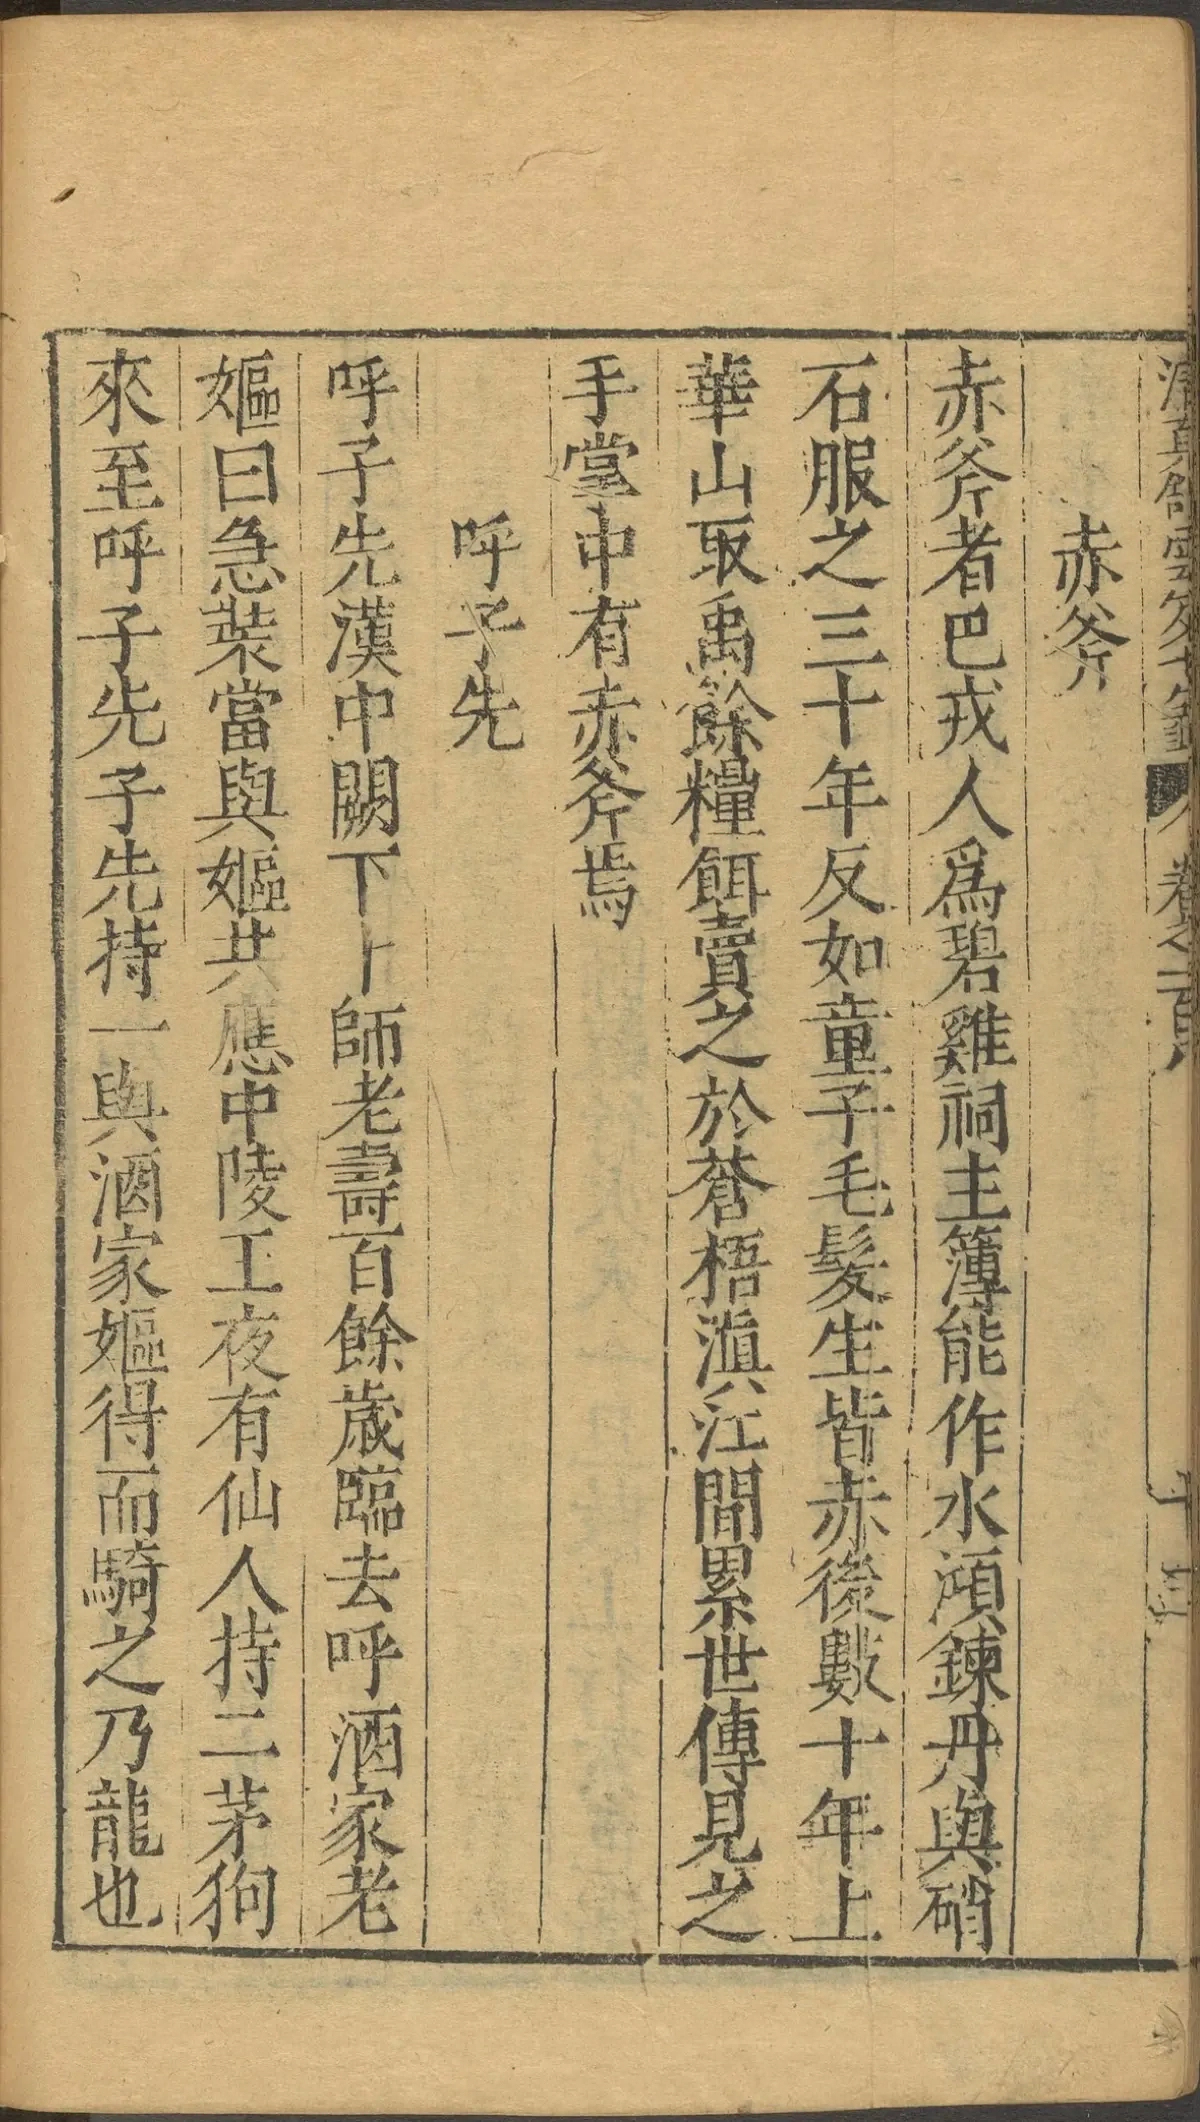 清真館雲笈七籤 卷之一百 十三
赤斧
赤斧者巴戎人爲碧雞祠主簿能作水澒鍊丹與硝
石服之三十年反如童子毛髮生皆赤後數十年上
華山取禹餘糧餌賣之於蒼梧滇江間累世傳見之
手掌中有赤斧焉
呼子先
呼子先漢中闕下卜師老壽百餘歲臨去呼酒家老
嫗曰急裝當與嫗共應中陵王夜有仙人持二茅狗
來至呼子先子先持一與酒家嫗得而騎之乃龍也